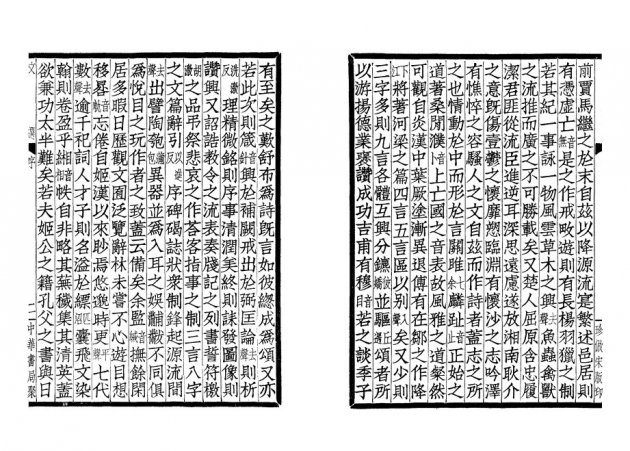 珍倣宋版印
前賈馬繼之於末自茲以降源流寔繁述邑居則
有憑虛亡音無是之作戒畋遊則有長楊羽獵之制
若其紀一事詠一物風雲草木之興去聲魚蟲禽獸
之流推而廣之不可勝載矣又楚人屈原含忠履
潔君匪從流臣進逆耳深思遠慮遂放湘南耿介
之意既傷壹鬱之懷靡愬臨淵有懷沙之志吟澤
有憔悴之容騷人之文自茲而作詩者蓋志之所
之也情動於中而形於言關雎麟趾音止正始之
道著桑間濮音卜上亡國之音表故風雅之道粲然
可觀自炎漢中葉厥塗漸異退傅有在鄒之作降
下江將著河梁之篇四言五言區以別矣又少則
三字多則九言各體互興分鑣並驅頌者所
以游揚德業褒讚成功吉甫有穆音目若之談季子
有至矣之歎舒布為詩既言如彼總成為頌又亦
若此次則箴音針興於補闕戒出於弼匡論去聲則析
洗激反理精微銘則序事清潤美終則誄發圖像則
讚興又詔誥教令之流表奏牋記之列書誓符檄
胡激之品弔祭悲哀之作答客指事之制三言八字
之文篇辭引序碑碣誌狀眾制鋒起源流間
去聲出譬陶匏異器並為入耳之娛黼黻不同俱
為悅目之玩作者之致蓋云備矣余監撫餘閑
居多暇日歷觀文囿泛覽辭林未嘗不心遊目想
移晷忘倦自姬漢以來眇焉悠邈時更平聲七代
數逾千祀詞人才子則名溢於縹囊飛文染
翰則卷盈乎緗音相帙自非略其蕪穢集其清英蓋
欲兼功太半難矣若夫姬公之籍孔父之書與日
文選序 中華書局聚